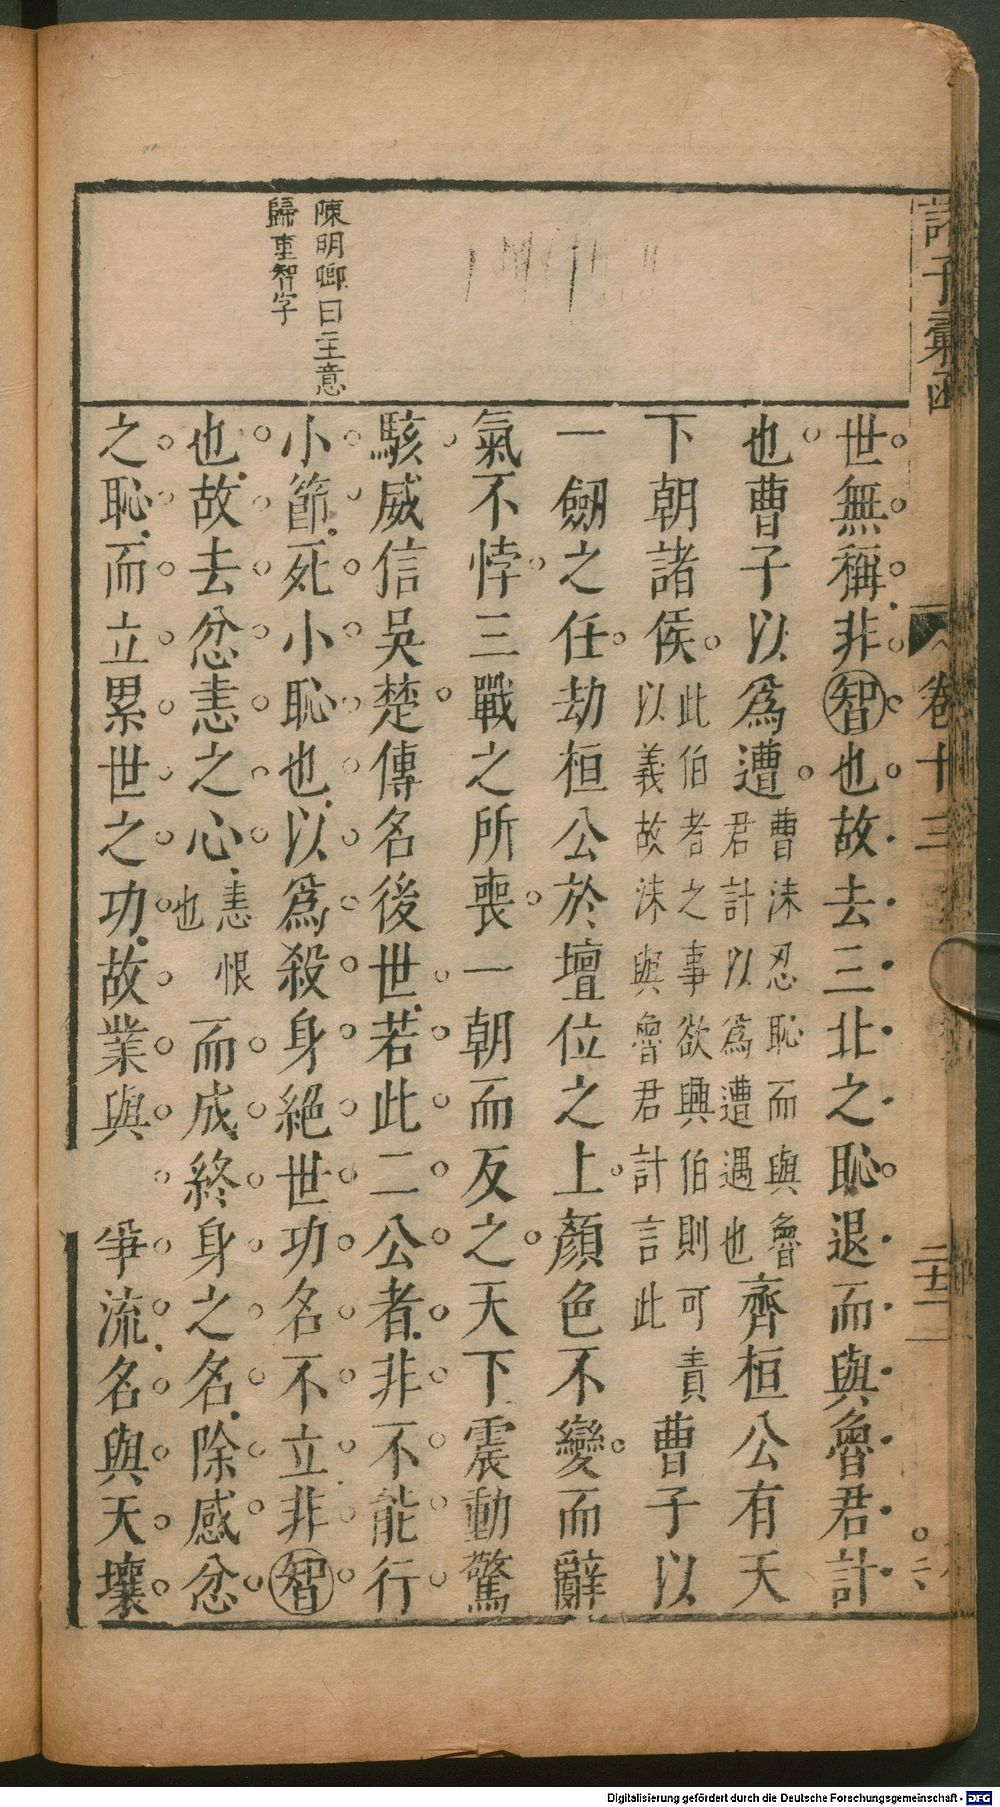 諸子彙函
卷十三
陳明卿曰主意
歸重智字
世無稱非智也故去三北之恥退而與魯君計
也曹子以爲遭曹沫忍恥而與魯君計以爲遭遇也齊桓公有天
下朝諸侯此伯者之事欲興伯則可責以義故沫與魯君計言此曹子以
一劒之任劫桓公於壇位之上顏色不變而辭
氣不悖三戰之所喪一朝而反之天下震動驚
駭威信吳楚傳名後世若此二公者非不能行
小節死小恥也以爲殺身絕世功名不立非智
也故去忿恚之心恚恨也而成終身之名除感忿
之恥而立累世之功故業與
爭流名與天壤
Digitalisierung gefördert durch die Deutsche Forschungsgemeinschaft - DFG